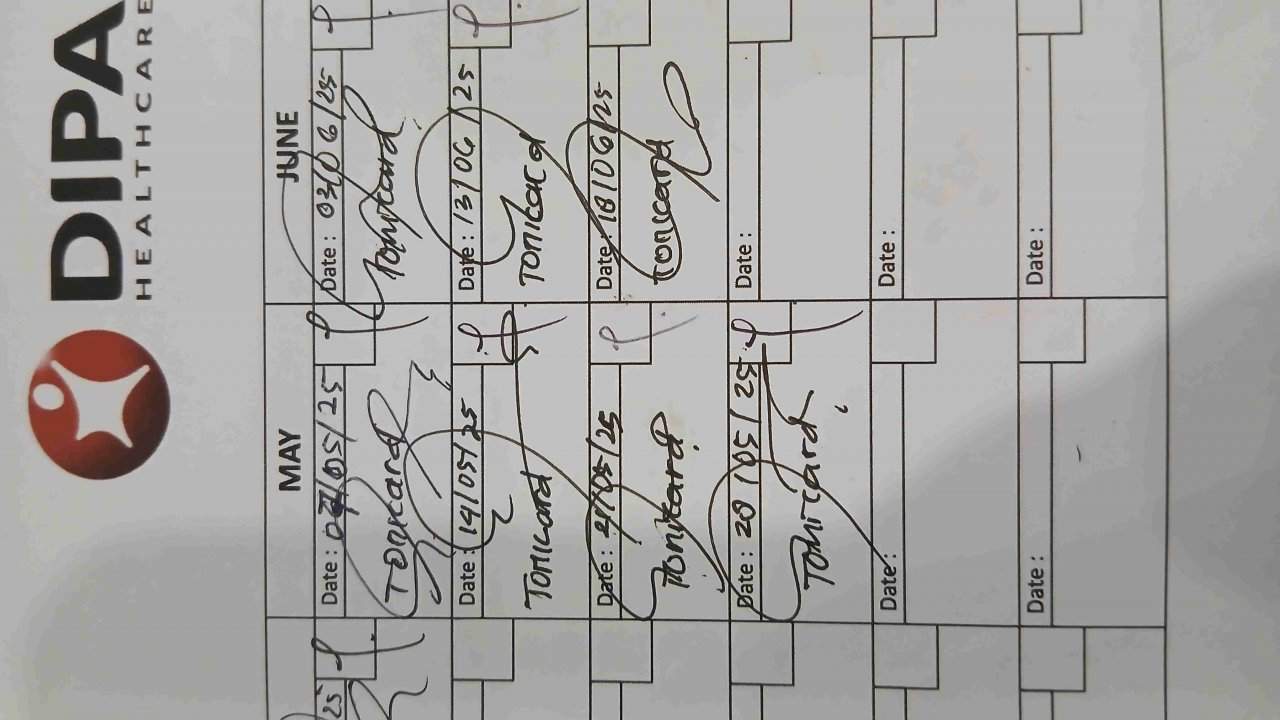 DIPA
HEALTHCARE
25
MAY
Date : 07/05/25
Tonicard
Date : 14/05/25
Tonicard
Date : 21/05/25
Tonicard
Date : 20/05/25
Tonicard
Date :
Date :
JUNE
Date : 03/06/25
Tonicard
Date : 13/06/25
Tonicard
Date : 18/06/25
Tonicard
Date :
Date :
Date :